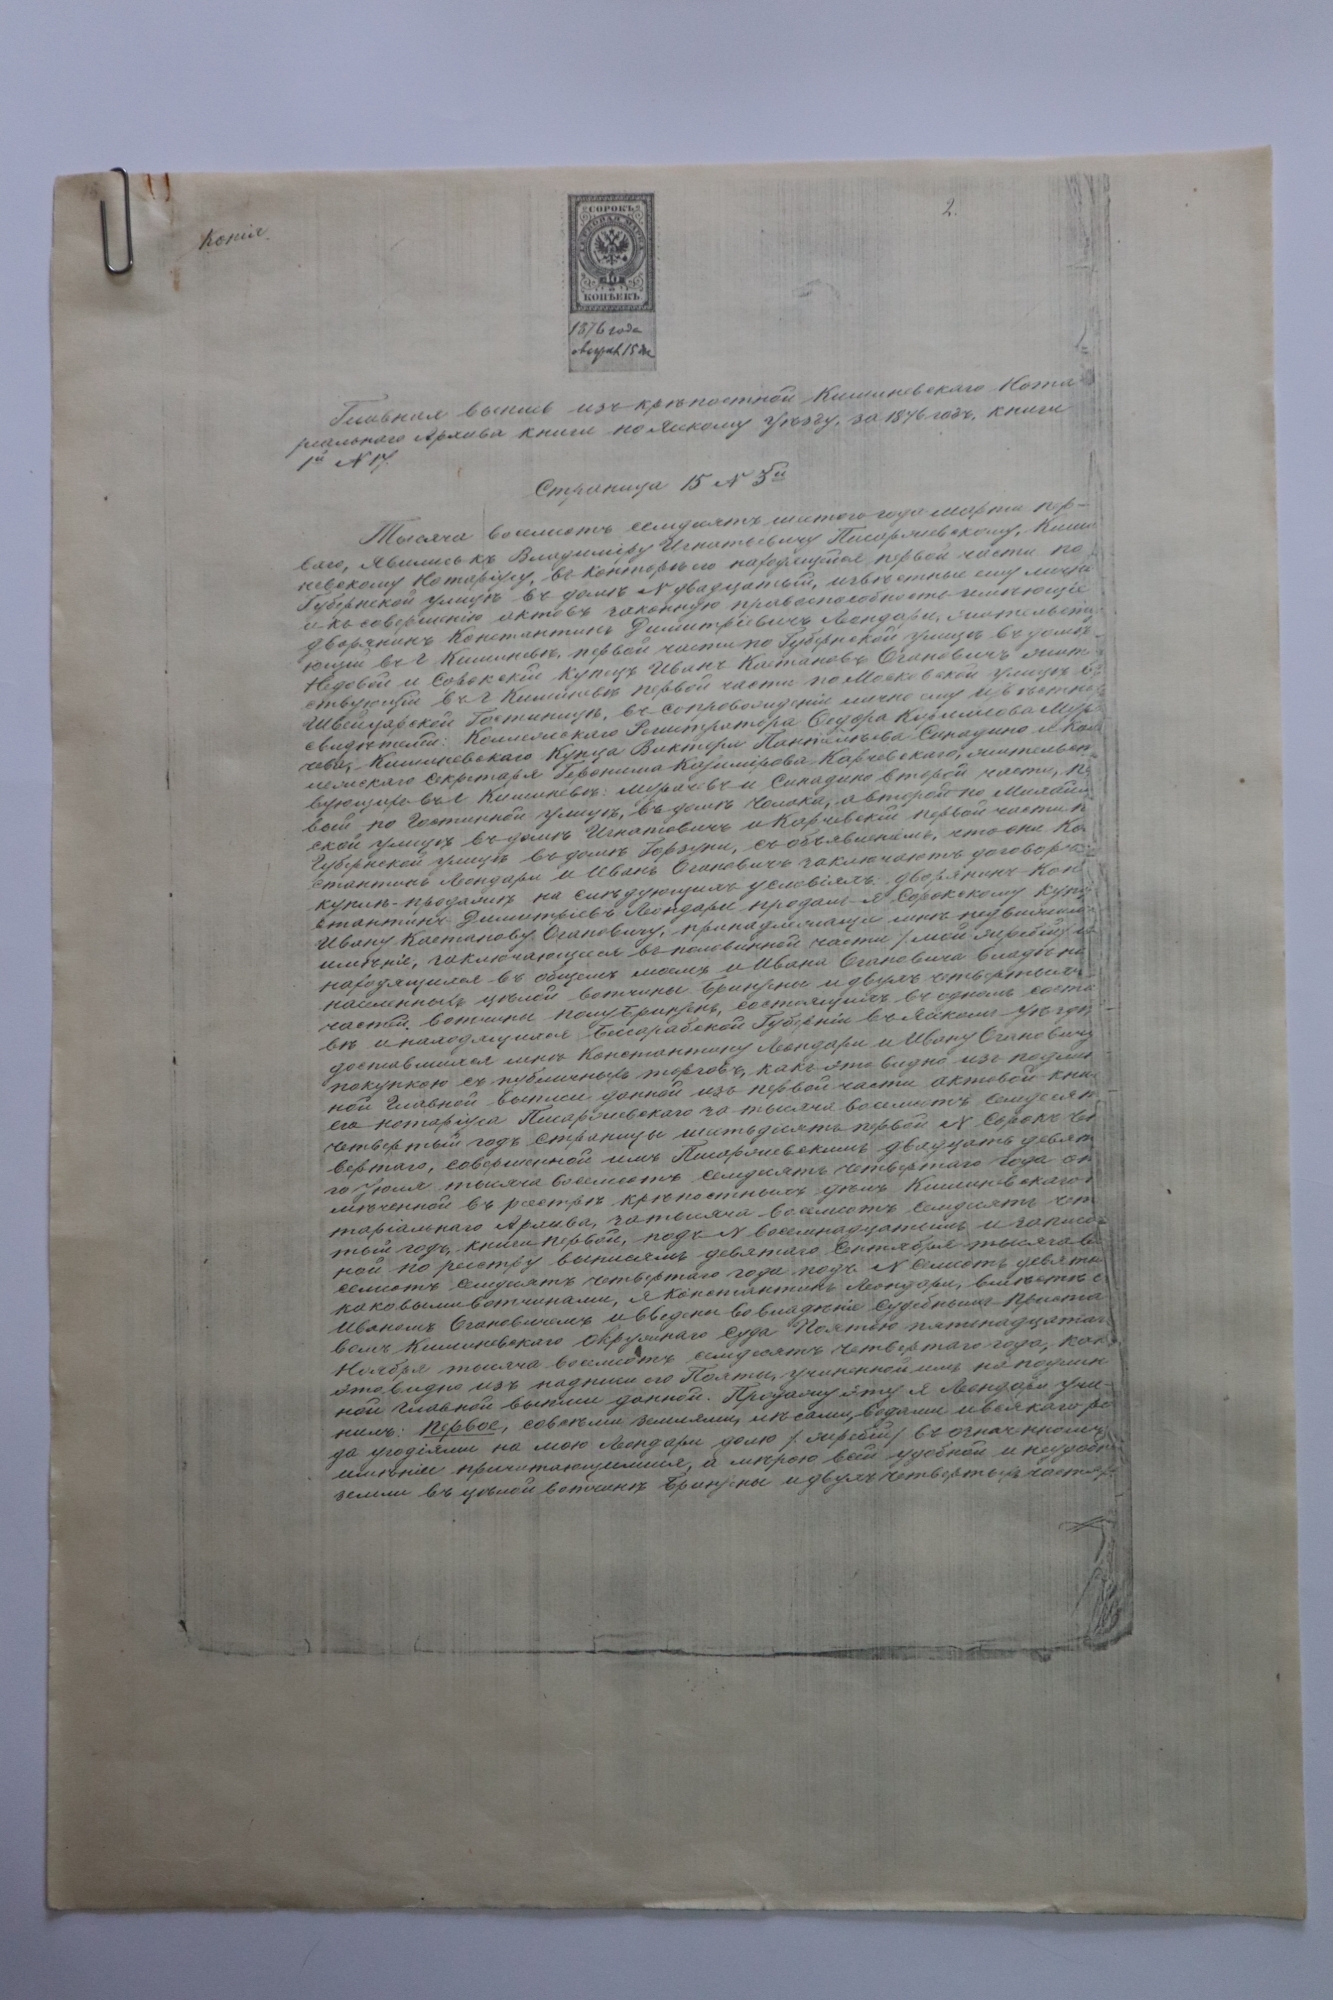 2.
Копія.
СОРОКЪ
ГЕРБОВАЯ МАРКА
40
КОПѢЕКЪ
1876 года
15 дня
Главная выпись изъ крѣпостной Кишиневскаго Нота
ріальнаго Архива книги по Яскому Уѣзду, за 1876 годъ, книги
1й N 17.
Страница 15 N 5й
Тысяча восемьсотъ семьдесятъ шестого года Марта пер-
ваго, явились къ Владиміру Игнатьевичу Писаржевскому, Киши
невскому Нотаріусу, въ контору его находящуюся первой части по
Губернской улицѣ въ домѣ N двадцатый, извѣстные ему лично
и къ совершенію актовъ законную правоспособность имѣющіе
дворянинъ Константинъ Димитріевичъ Леондари, жительству
ющій въ г Кишиневѣ, первой части по Губернской улицѣ въ домѣ
и Сорокскій купецъ Иванъ Кастановъ Огановичъ жит
ствующій въ г Кишиневѣ первой части по Московской улицѣ въ
Швейцарской Гостиницѣ, въ сопровожденіи лично ему извѣстныхъ
свидѣтелей: Коллежскаго Регистратора Ѳедора Кириллова Мур
чева, Кишиневскаго Купца Виктора Пантелѣева Синадино и Кол
лежскаго Секретаря Геронима Казимірова Карчевскаго, жительст
вующихъ въ г Кишиневѣ: Мурачевъ и Синадино второй части, пер
вый по Гостинной улицѣ, въ домѣ Чолака, а второй по Михайлов
ской улицѣ въ домѣ Игнатовичъ и Карчевскій первой части по
Губернской улицѣ въ домѣ, съ объявленіемъ, что они Кон
стантинъ Леондари и Иванъ Огановичъ заключаютъ договоръ
купли-продажи на слѣдующихъ условіяхъ: дворянинъ Кон
стантинъ Димитріевъ Леондари продалъ я Сорокскому купцу
Ивану Кастанову Огановичу, принадлежащее мнѣ недвижимое
имѣніе, заключающееся въ половинной части / мой жребій / въ
находящихся въ общемъ моемъ и Ивана Огановича владѣніи
населенныхъ цѣлой вотчины Бринзены и двухъ четвертыхъ
частей вотчины полу Бринзенъ, состоящихъ въ одномъ соста
вѣ и находящихся Бессарабской Губерніи въ Яскомъ уѣздѣ
доставшихся мнѣ Константину Леондари и Ивану Огановичу
покупкою съ публичныхъ торговъ, какъ это видно изъ подлин
ной Главной выписи данной изъ первой части актовой кни
ги нотаріуса Писаржевскаго за тысяча восемьсотъ семьдесятъ
четвертый годъ страницы шестьдесятъ первой N Сорокъ чет
вертаго, совершенной имъ Писаржевскимъ двадцать девят
го Іюля тысяча восемьсотъ семьдесятъ четвертаго года от
мѣченной въ реестрѣ крѣпостныхъ дѣлъ Кишиневскаго Но
таріальнаго Архива, за тысяча восемьсотъ семьдесятъ четвер
тый годъ, книги первой, подъ N восемнадцатымъ и записан
ной по реестру выписямъ девятаго Сентября тысяча во
семьсотъ семьдесятъ четвертаго года подъ N семьсотъ девять
каковыми вотчинами, я Константинъ Леондари, вмѣстѣ съ
Иваномъ Огановичемъ и введены во владѣніе Судебнымъ Приста
вомъ Кишиневскаго Окружнаго Суда Поятою пятнадцатаго
Ноября тысяча восемьсотъ семьдесятъ четвертаго года, какъ
это видно изъ надписи его Пояты, учиненной имъ на подлин
ной главной выписи данной. Продажу эту я Леондари учи-
нилъ: Первое, со всѣми землями, лѣсами, водами и всякаго ро
да угодіями на мою Леондари долю / жребій / въ означенномъ
имѣніи причитающимися, а мѣрою всей удобной и неудобн
земли въ цѣлой вотчинѣ Бринзены и двухъ четвертыхъ частяхъ